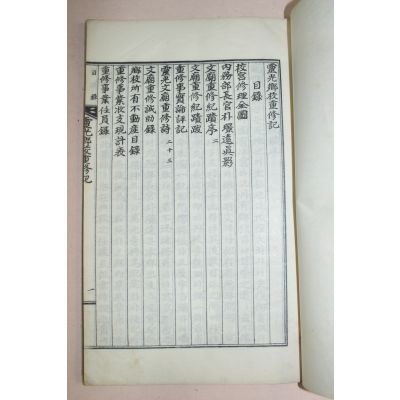 靈光鄉校重修記
目錄
校宮修理全圖
內務部長官朴履遠眞影
文廟重修紀蹟序 二
文廟重修紀蹟跋
重修事實論評記
靈光文廟重修詩 二十三
文廟重修誠助錄
鄉校所有不動產目錄
重修事業收支現計表
重修事業任員錄
目錄
靈光鄉校重修記
一